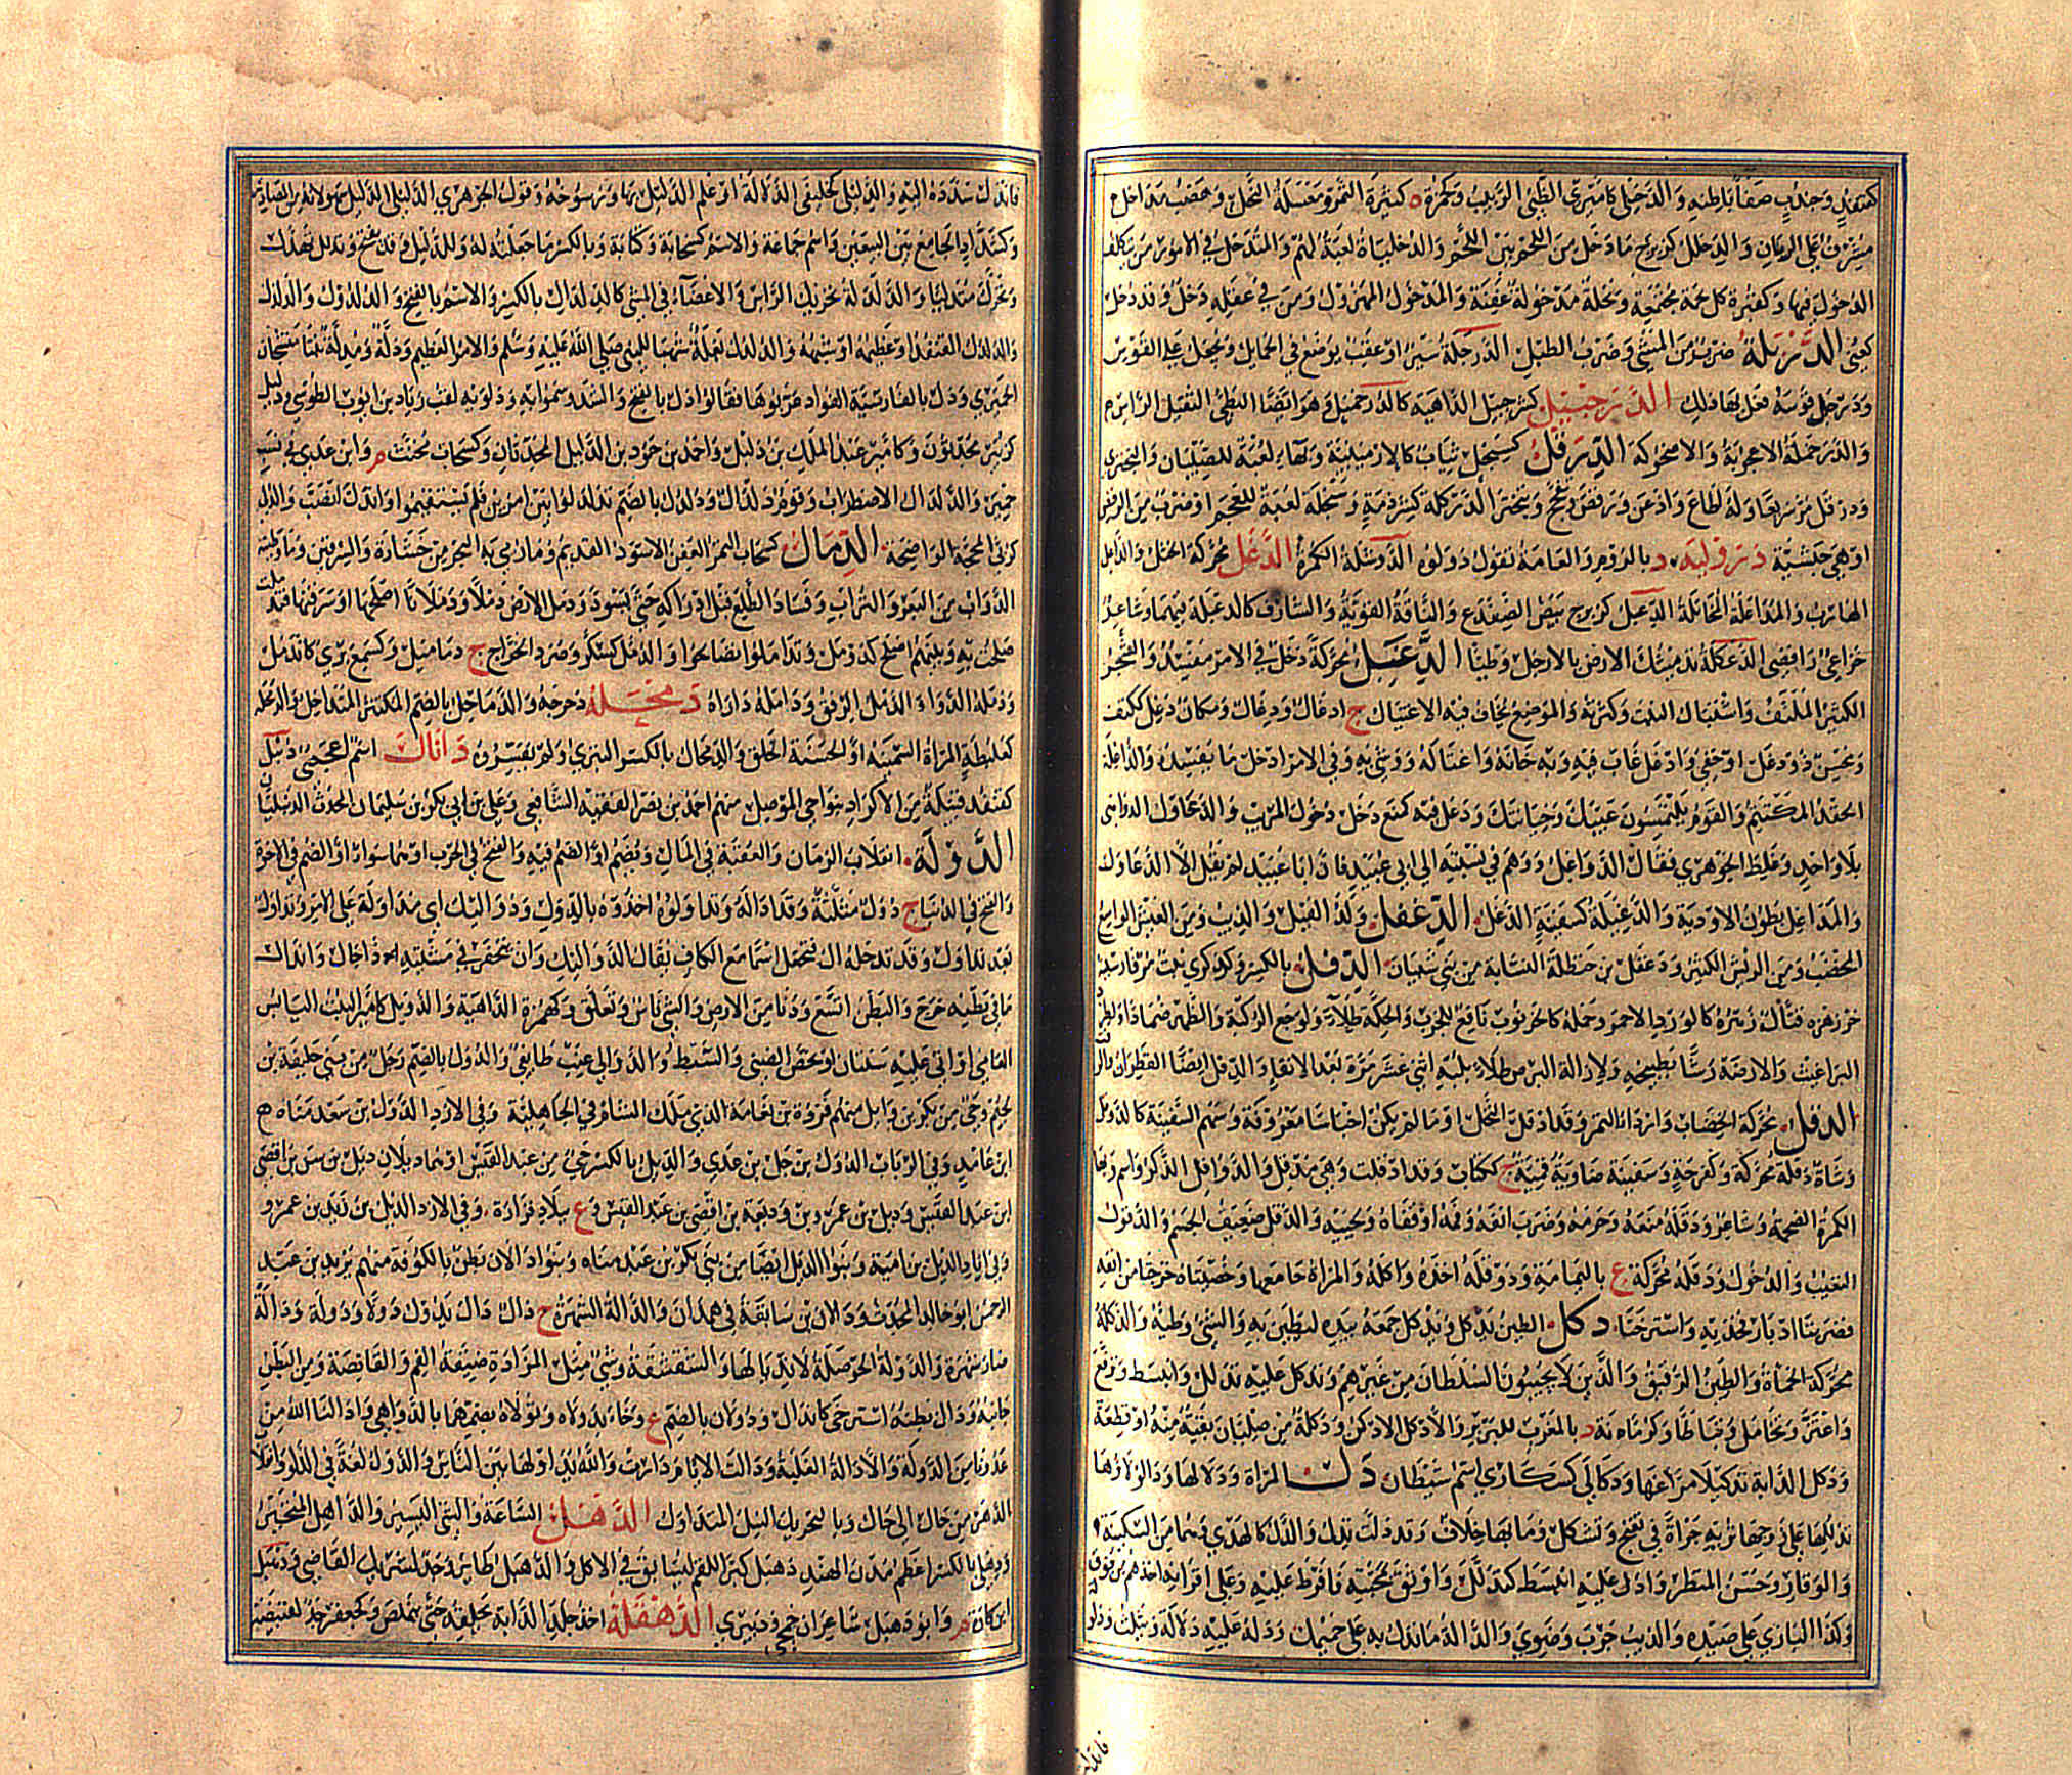 كقنفذ وجندب صفا باطنه والدخيلي كأميري الظبي الربيب وكهمزة ه كثيرة التمر ومعسلة النحل وهضب مداخل
مشرف على الريان والدخلل كزبرج ما دخل من اللحم بين اللحم والدخلياة لعبة لهم والمتدخل في الأمور من يتكلف
الدخول فيها وكقبرة كل لحمة مجتمعة ونخلة مدخولة عفنة والمدخول المهزول ومن في عقله دخل وقد دخل
كعني الدربلة ضرب من المشي وضرب الطبل الدرجلة سير أو عقب يوضع في الحمايل ويجعل على القوس
ودرجل قوسه فعل بها ذلك الدرخبيل كشرحبيل الداهية كالدرخميل وهو أيضا البطيء الثقيل الراس م
والدرخملة الأعجوبة والأضحوكة الدرقل كسبحل ثياب كالإرمينية وبهاء لعبة للصبيان والتبختر
ودرقل مر سريعا وله أطاع وأذعن ورقص وتفحج وتبختر الدركلة كشرذمة وسبحلة لعبة للعجم أو ضرب من الرقص
أو هي حبشية درولية د بالروم والعامة تقول دولوه الدوشلة الكمرة الدغل محركة الختل والداعل
الهارب والمداعلة المخاتلة الدعبل كزبرج بيض الضفدع والناقة القوية والشارف كالدعبلة فيهما وشاعر
خزاعي رافضي الدعكلة تدميثك الأرض بالأرجل وطيا الدغل محركة دخل في الأمر مفسد والشجر
الكثير الملتف واشتباك النبت وكثرته والموضع يخاف فيه الاغتيال ج أدغال ودغال ومكان دغل ككتف
ومحسن ذو دغل أو خفي وأدغل غاب فيه وبه خانه واغتاله ووشى به وفي الأمر أدخل ما يفسده والداغلة
الحقد المكتتم والقوم يلتمسون عيبك وخيانتك ودغل فيه كمنع دخل دخول المريب والدغاول الدواهي
بلا واحد وغلط الجوهري فقال الدواغل ووهم في نسبته إلى أبي عبيد فإن أبا عبيد لم يقل إلا الدغاول
والمداغل بطون الأودية والدغيلة كسفينة الدغل الدغفل ولد الفيل والذيب ومن العيش الواسع
الخصب ومن الريش الكثير ودغفل بن حنظلة النسابة من بني شيبان الدفل بالكسر وكذكرى نبت مر فارسيته
خرزهره قتال زهره كالورد الأحمر وحمله كالخرنوب نافع للجرب والحكة طلاء ولوجع الركبة والظهر ضمادا ولطرد
البراغيث والأرضة رشا بطبيخه ولإزالة البرص طلاء بلبه اثني عشر مرة بعد الإنقاء والدفل أيضا القطران والزفت
الدقل محركة الخضاب وأردأ التمر وقد أدقل النخل أو ما لم يكن أجناسا معروفة وسهم السفينة كالدوقل
وشاة دقلة محركة وكفرحة وسفينة ضاوية قمئة ج ككتاب وقد أدقلت وهي مدقل والدقل الذكر واسم رجل
الكمرة الضخمة وشاعر ودقله منعه وحرمه وضرب أنفه وفمه أو قفاه ولحييه والدقل ضعيف الجسم والدقول
التغيب والدخول ودقلة محركة ع باليمامة ودوقله أخذه وأكله والمرأة جامعها وخصيتاه خرجتا من أنفه
فضربتا أدبار فخذيه واسترختا دكل الطين يدكل ويدكل جمعه بيده ليطين به والشيء وطئه والدكلة
محركة الحمأة والطين الرقيق والذين لا يجيبون السلطان من عزهم وتدكل عليه تدلل وانبسط وترفع
واعتز وتخامل وتباطا وكرمانة د بالمغرب للبربر والأدكل الأدكن ودكلة من صليان بقية منه أو قطعة
ودكل الدابة تدكيلا مرغها ودكالى كسكارى اسم شيطان دل المرأة ودلالها ودالولاؤها
تدللها على زوجها تريه جرأة في تغنج وتشكل وما بها خلاف وقد دلت تدل والدل كالهدي وهما من السكينة
والوقار وحسن المنظر وأدل عليه انبسط كتدلل وأوثق بمحبته فأفرط عليه وعلى أقرانه أخذهم من فوق
وكذا البازي على صيده والذيب جرب وضوي والدالة ما تدل به على حميمك ودله عليه دلالة ويثلث ودلولة
فاندل
فاندل سدده إليه والدليلى كخليفى الدلالة أو علم الدليل بها ورسوخه وقول الجوهري الدليلى الدليل سهو لأنه من المصادر
وكشداد الجامع بين البيعين واسم جماعة والاسم كسحابة وكتابة وبالكسر ما جعلته له وللدليل وقد تفتح وتدلدل تهدل
وتحرك متدليا والدلدلة تحريك الراس والأعضاء في المشي كالدلدال بالكسر والاسم بالفتح والدلدول والدلدل
والدلدل القنفذ أو عظيمه أو شبهه والدلدل بغلة شهباء للنبي صلى الله عليه وسلم والأمر العظيم ودلة ومدلة بنتا منجشان
الحميري ودل بالفارسية الفؤاد عربوها فقالوا دل بالفتح والشد وسموا به ودلويه لقب زياد بن أيوب الطوسي ودليل
كزبير محدثون وكأمير عبد الملك بن دليل وأحمد بن حمود بن الدليل المحدثان وكسحاب مخنث م وابن عدي في نسب
حمير والدلدال الاضطراب وقوم دلدال ودلدل بالضم تدلدلوا بين أمرين فلم يستقيموا واندل انصب والدلى
كربى المحجة الواضحة الدمال كسحاب التمر العفن الأسود القديم وما رمي به البحر من خشارة والسرقين وما وطئته
الدواب من البعر والتراب وفساد الطلع قبل إدراكه حتى يسود ودمل الأرض دملا ودملانا أصلحها أو سرقنها فتدملت
صلحت به وبينهم أصلح كدومل وتداملوا تصالحوا والدمل كسكر وصرد الخراج ج دماميل وكسمع بري كاندمل
ودمله الدواء الدمل الرفق ودامله داراه دمحله دحرجه والدماحل بالضم المكتنز المتداخل والدمحلة
كعلبطة المرأة السمينة أو الحسنة الخلق والدمحال بالكسر التتري ولم يفسروه دانال اسم أعجمي دنبل
كقنفذ قبيلة من الأكراد بنواحي الموصل منهم أحمد بن نصر الفقيه الشافعي وعلي بن أبي بكر بن سليمان المحدث الدنبليان
الدولة انقلاب الزمان والعقبة في المال ويضم أو الضم فيه والفتح في الحرب أو هما سواء أو الضم في الآخرة
والفتح في الدنيا ج دول مثلثة وقد أداله وتداولوه أخذوه بالدول ودواليك أي مداولة على الأمر أو تداول
بعد تداول وقد تدخله ال فتجعل اسما مع الكاف يقال الدواليك وأن يتحفز في مشيته إذا جال واندال
ما في بطنه خرج والبطن اتسع ودنا من الأرض والشيء ناس وتعلق وكهمزة الداهية والدويل كأمير النبت اليابس
العامي أو أتى عليه سنتان أو يخص النصي والسبط والدوالي عنب طايفي والدول بالضم رجل من بني حنيفة بن
لجيم وحي من بكر بن وايل منهم فروة بن نعامة الذي ملك الشام في الجاهلية وفي الأزد الدول بن سعد مناة
ابن غامد وفي الرباب الدول بن جل بن عدي والديل بالكسر حي من عبد القيس أو هما ديلان ديل بن شن بن أفصى
ابن عبد القيس وديل بن عمرو بن وديعة بن أفصى بن عبد القيس وع ببلاد فزارة وفي الأزد الديل بن زيد بن عمرو
وفي إياد الديل بن أمية وبنو الديل أيضا من بني بكر بن عبد مناة وبنو دالان بطن بالكوفة منهم يزيد بن عبد
الرحمن أبو خالد المحدث ودالان بن سابقة في همدان والدالة الشهرة ج دال ودال يدول دولا ودولة ودالة
صار شهرة والدولة الحوصلة لاندياله والشقشقة وشيء مثل المزادة ضيقة الفم والقانصة ومن البطن
جانبه ودال بطنه استرخى كاندال ودولان بالضم ع وجاء بدولاه وتولاه بضمهما بالدواهي وأدالنا الله من
عدونا من الدولة والإدالة الغلبة ودالت الأيام دارت والله يداولها بين الناس والدول لغة في الدلو وانقلاب
الدهر من حال إلى حال وبالتحريك النبل المتداول الدهل الساعة والشيء اليسير والداهل المتحير
ودهلي بالكسر أعظم مدن الهند دهبل كبر اللقم ليسابق في الأكل والدهبل طاير وجد لشريك القاضي ودهبل
ابن كارة م وأبو دهبل شاعران جمحي ودبيري الدهقلة أخذ جلد الدابة بحلقه حتى يملص وكجعفر جد لقبيصة